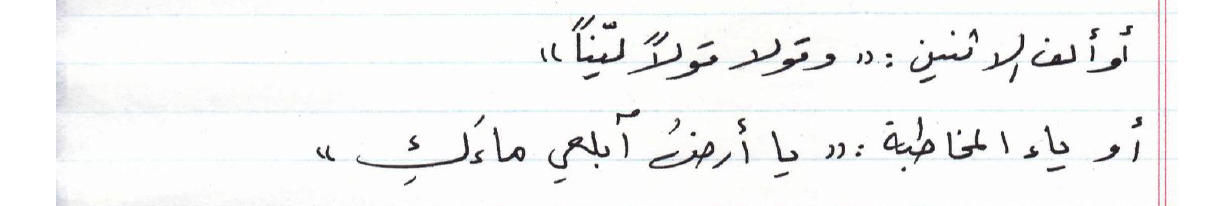 أو ألف الاثنين : « وقولا قولاً ليّناً »
أو ياء المخاطبة : « يا أرضُ آبلعي ماءَكِ »